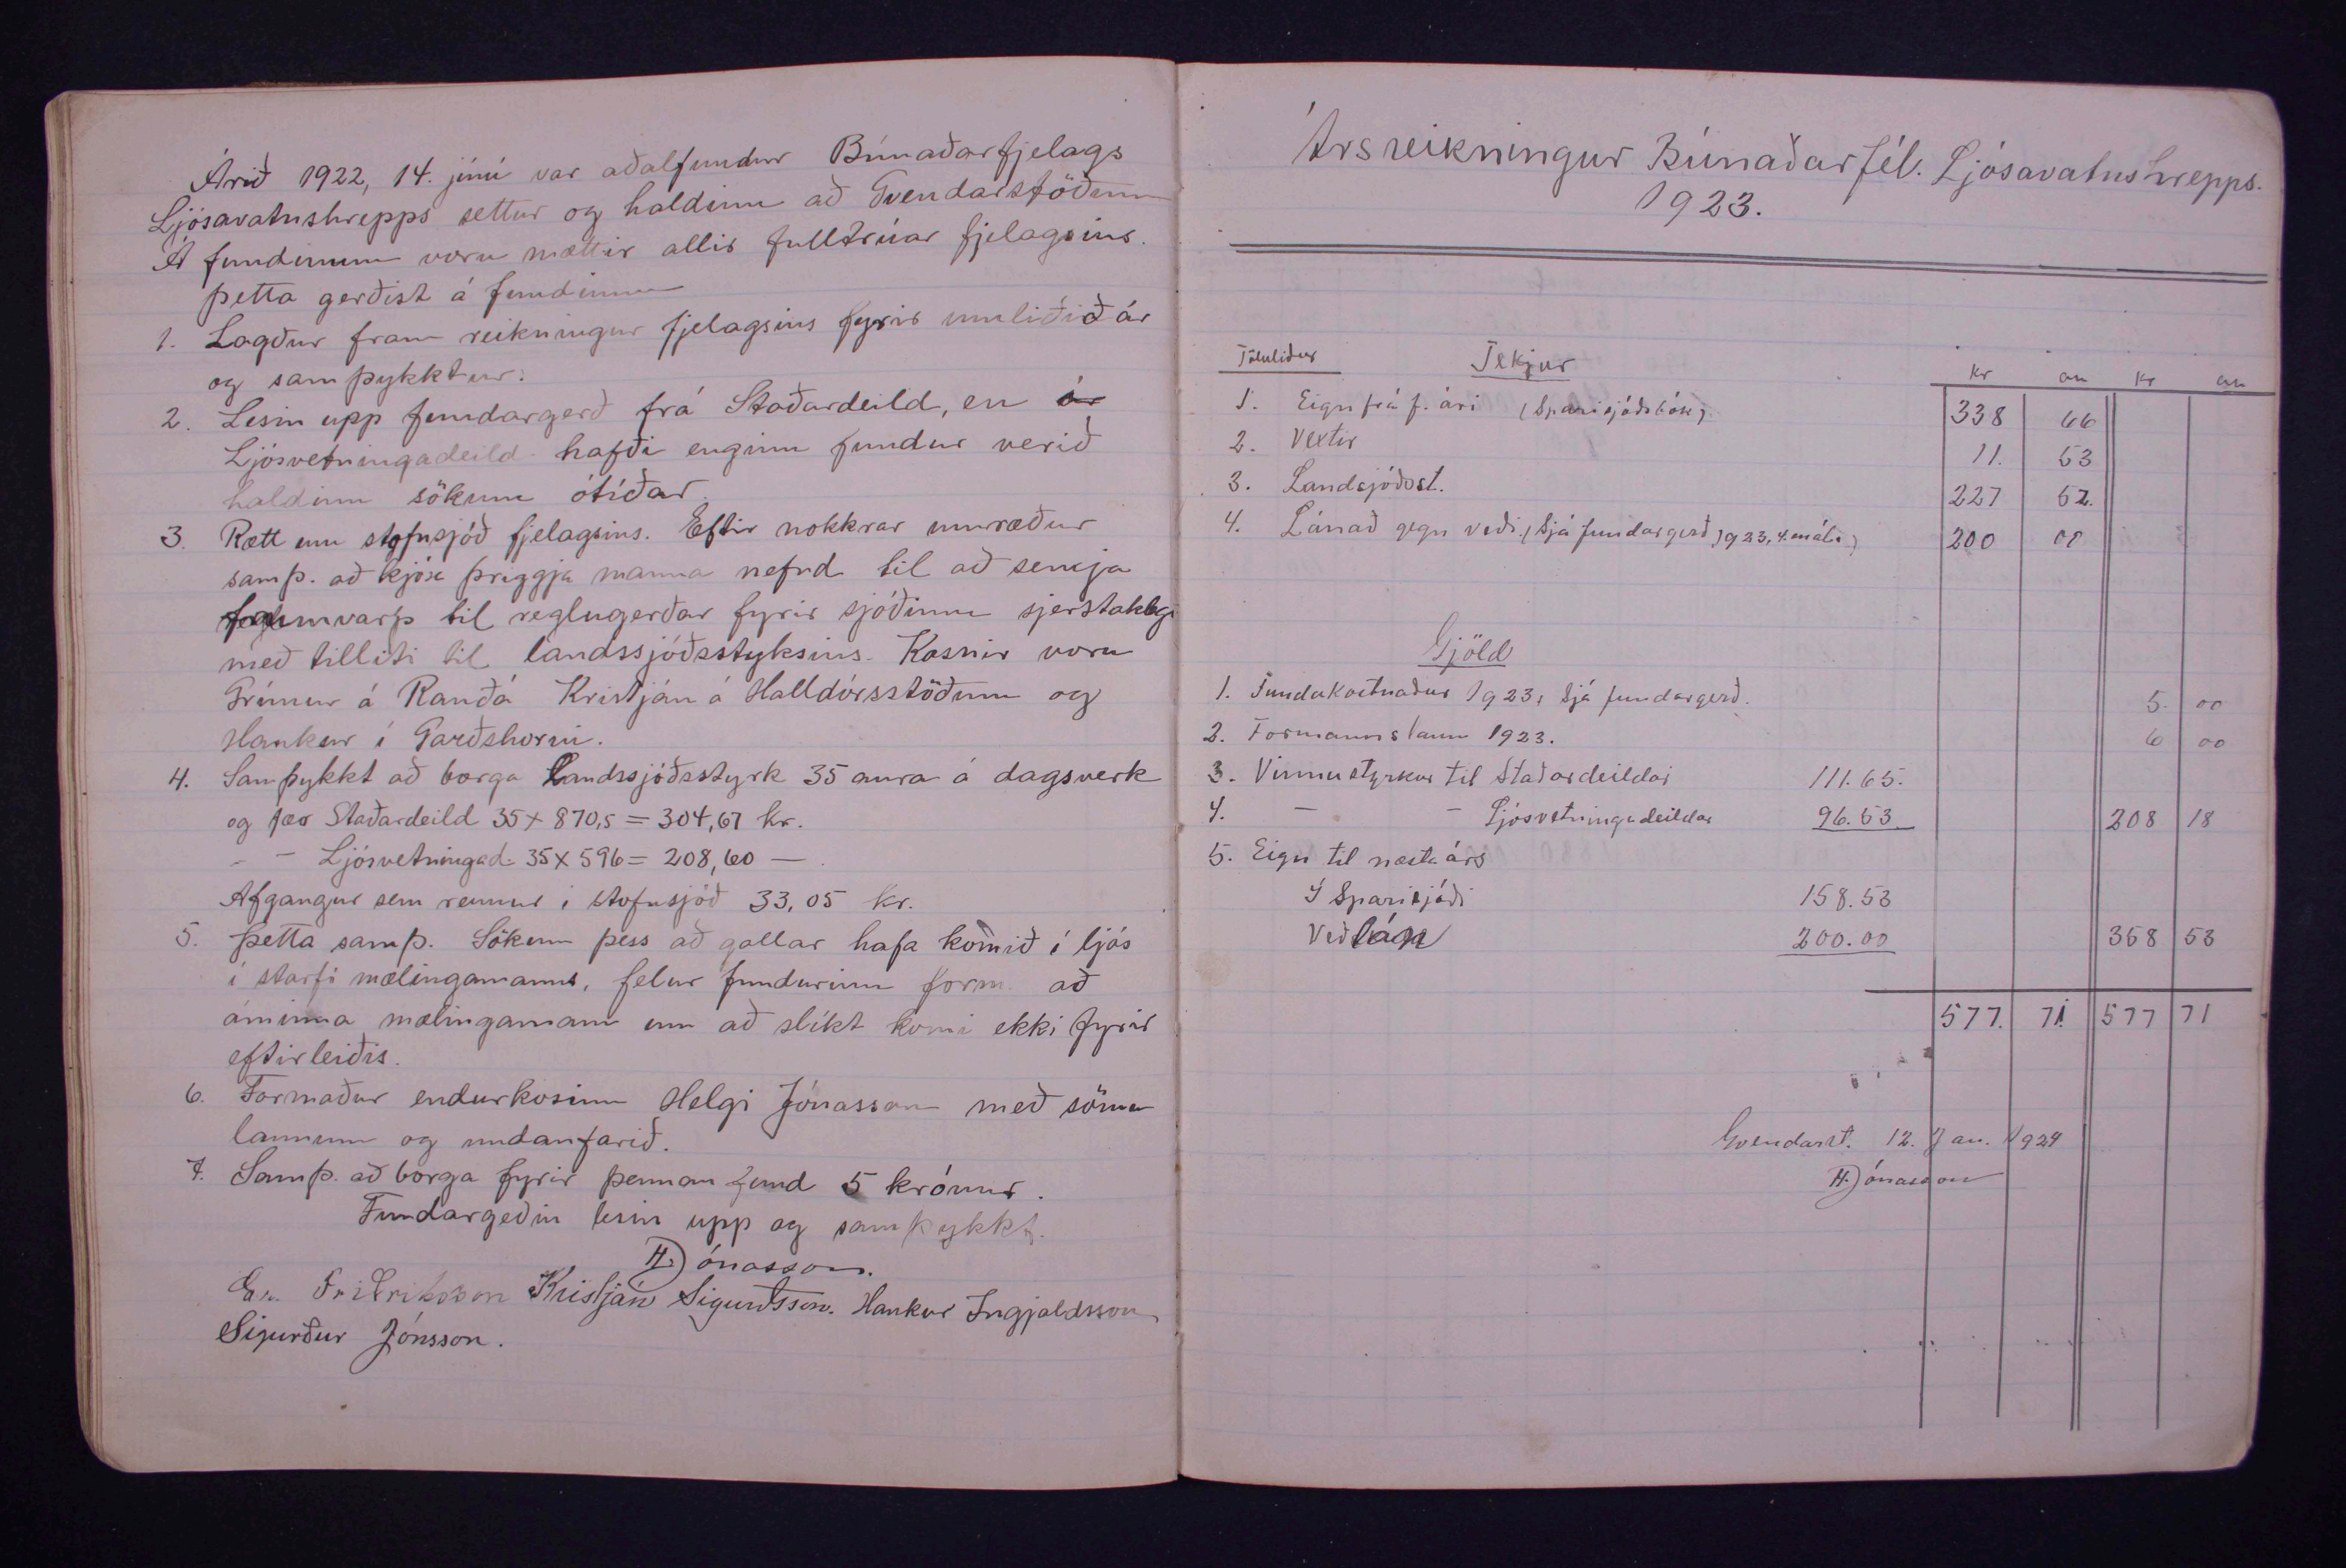 Árið 1922, 14. júní var aðalfundur Búnaðarfjelags
Ljósavatnshrepps settur og haldinn að Gvendarstöðum
Á fundinum voru mættir allir fulltrúar fjelagsins.
Þetta gerðist á fundinum
1. Lagður fram reikningur fjelagsins fyrir umliðið ár
og samþykktur.
2. Lesin upp fundargerð frá Staðardeild, en úr
Ljósvetningadeild hafði enginn fundur verið
haldinn sökum ótíðar.
3. Rætt um stofnsjóð fjelagsins. Eftir nokkrar umræður
samþ. að kjósa þriggja manna nefnd til að semja
frumvarp til reglugerðar fyrir sjóðinn sjerstaklegi
með tilliti til landssjóðsstyksins. Kosnir voru
Grímur á Rauðá Kristján á Halldórsstöðum og
Haukur í Garðshorni.
4. Samþykkt að borga Landssjóðsstyrk 35 aura á dagsverk
og fær Staðardeild 35 x 870,5 = 304,67 kr.
- - Ljósvetningad. 35 x 596 = 208,60 —
Afgangur sem rennur í stofnsjóð 33,05 kr.
5. Þetta samþ. Sökum þess að gallar hafa komið í ljós
í starfi mælingamanns, felur fundurinn form. að
áminna mælingamann um að slíkt komi ekki fyrir
eftirleiðis.
6. Formaður endurkosinn Helgi Jónasson með sömu
launum og undanfarið.
7. Samþ. að borga fyrir þennan fund 5 krónur.
Fundargeðin lesin upp og samþykkt.
H. Jónasson.
Friðriksson Kristján Sigurðsson. Haukur Ingjaldsson
Sigurður Jónsson.
Ársreikningur Búnaðarfél. Ljósavatnshrepps.
1923.
Töluliður Tekjur kr au kr au
1. Eign frá f. ári (Sparisjóðsbók) 338 66
2. Vextir 11. 53
3. Landsjóðsst. 227 52.
4. Lánað gegn veði. (Sjá fundargerð 1923, 4. máli) 200 00
Gjöld
1. Fundakostnaður 1923, sjá fundargerð. 5. 00
2. Formannslaun 1923. 6 00
3. Vinnustyrkur til Staðardeildar 111.65.
4. — — Ljósvetningadeildar 96.53 208 18
5. Eign til næsta árs
Í Sparisjóði 158.53
Veðlán 200.00 358 53
577. 71. 577 71
Gvendarst. 12. Jan. 1924
H. Jónasson